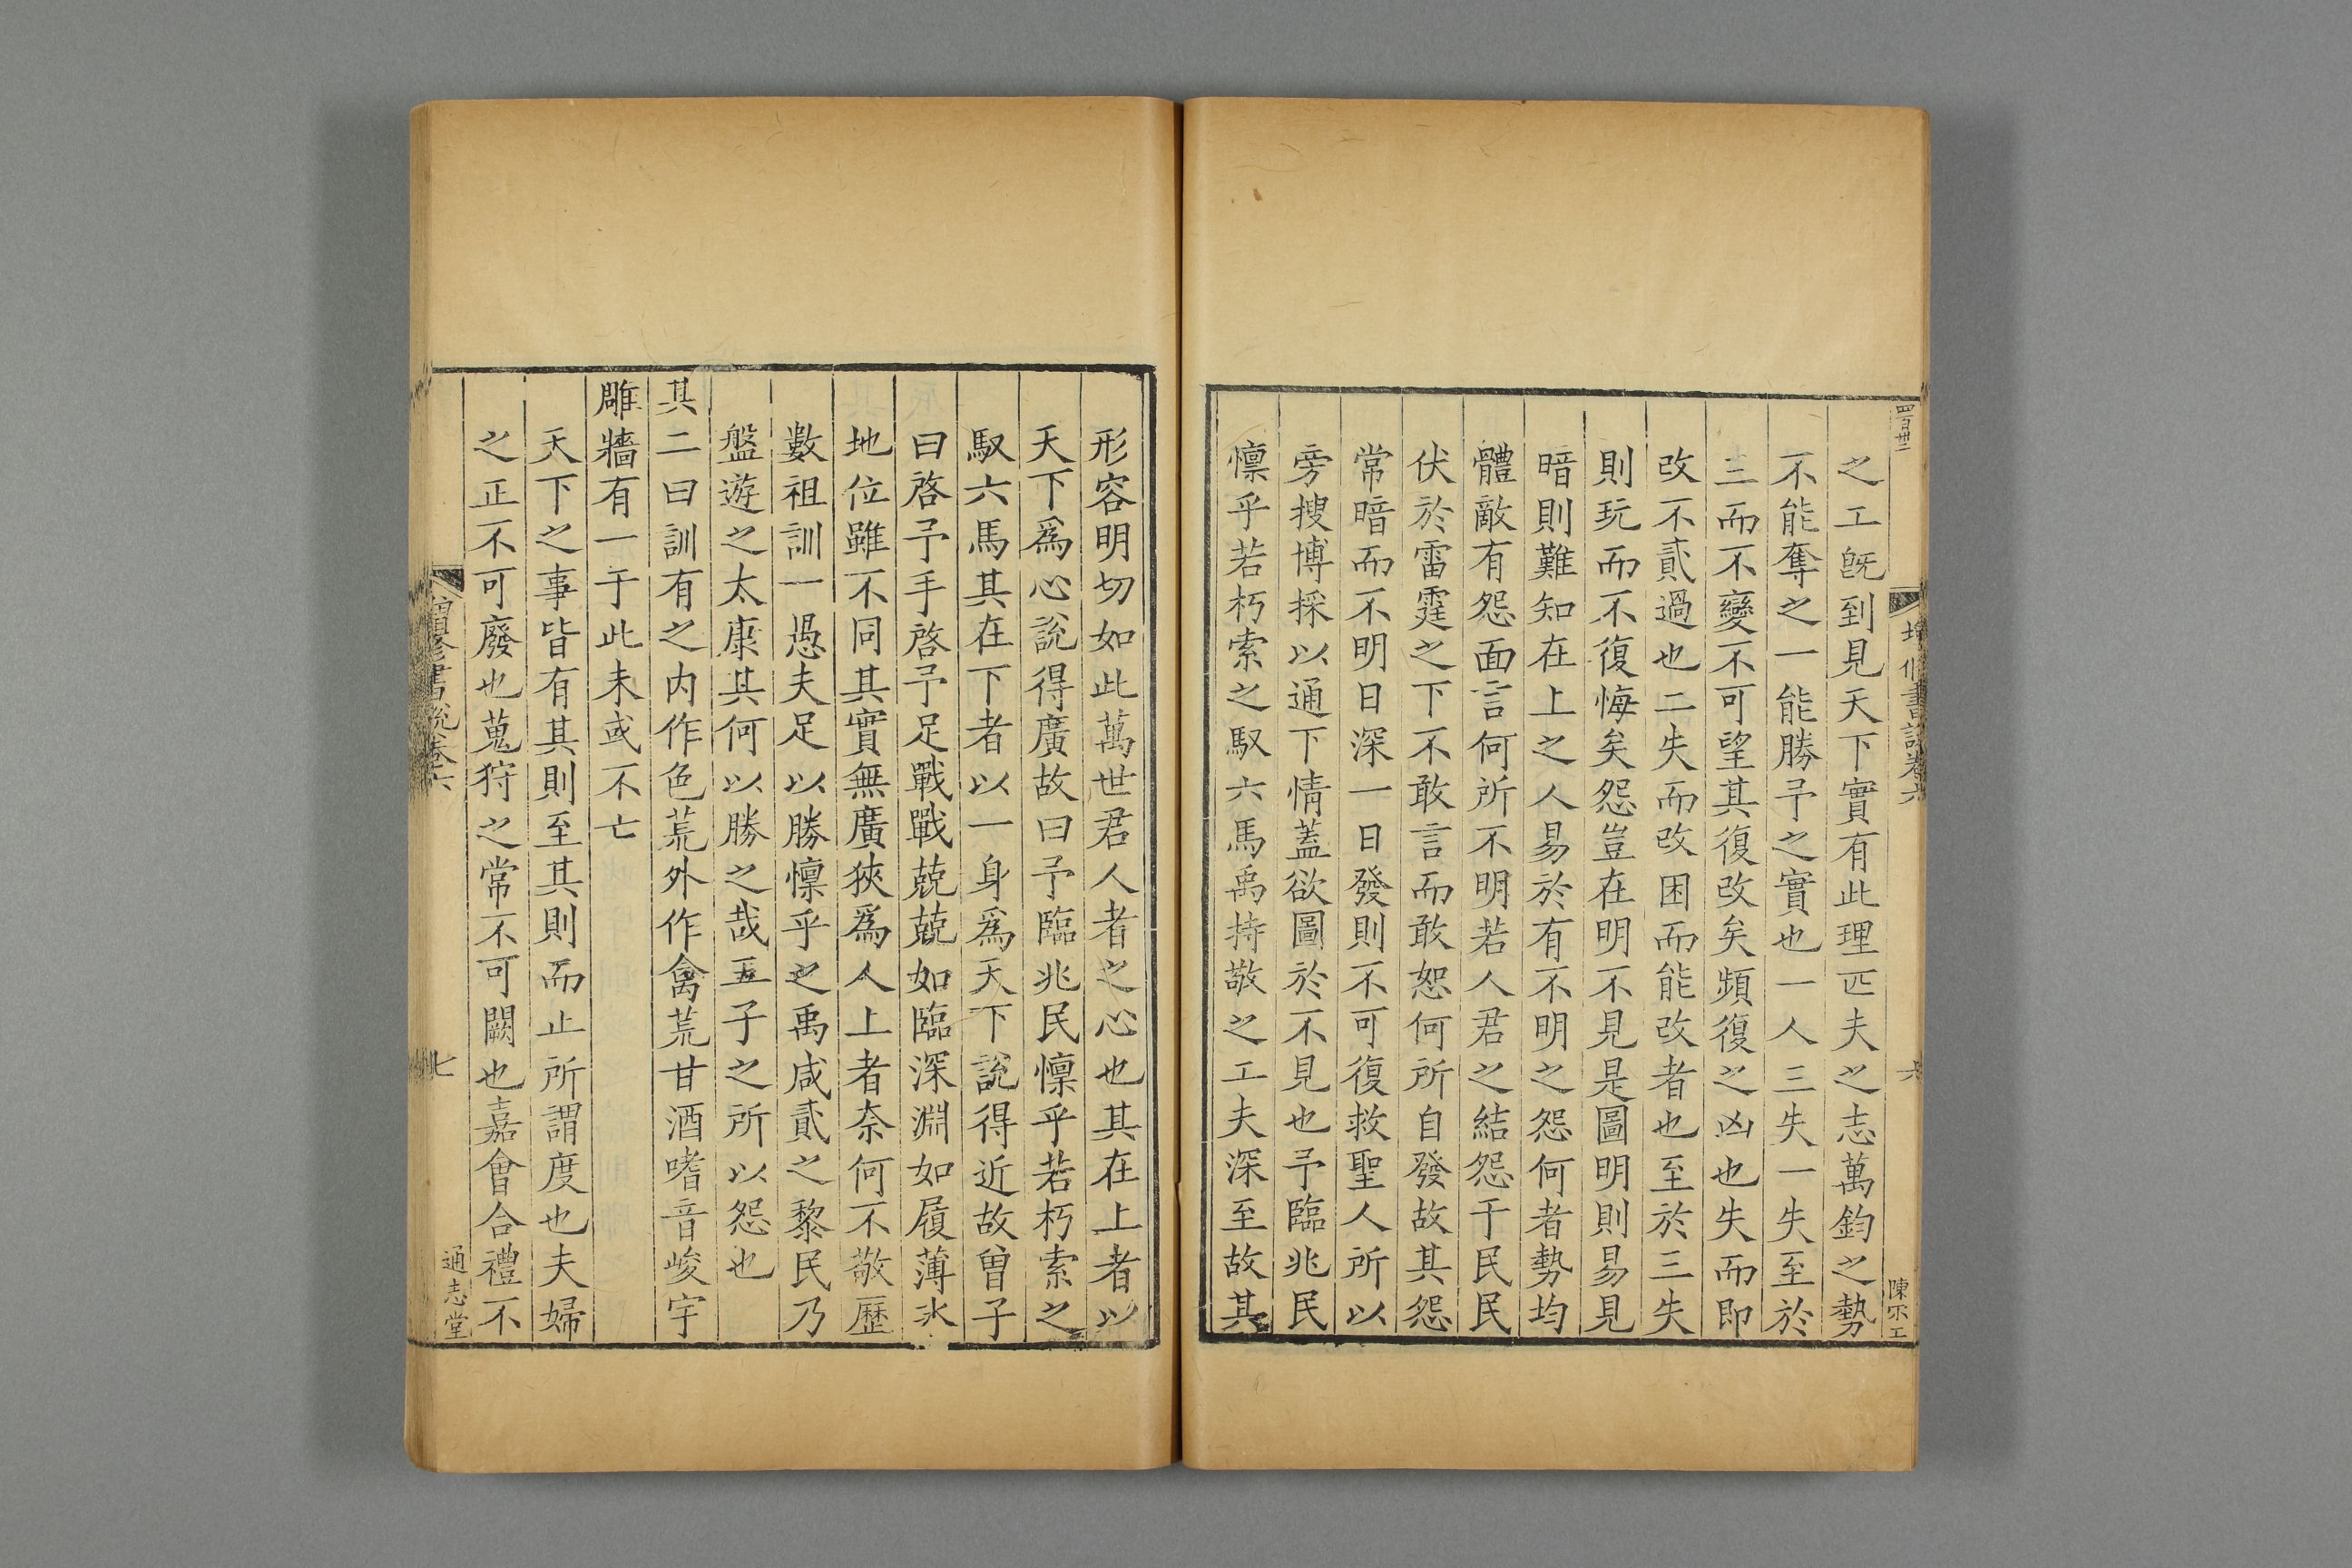 四百卅二
增修書說卷六
六
陳不工
之工旣到見天下實有此理匹夫之志萬鈞之勢
不能奪之一能勝予之實也一人三失一失至於
三而不變不可望其復改矣頻復之凶也失而即
改不貳過也二失而改困而能改者也至於三失
則玩而不復悔矣怨豈在明不見是圖明則易見
暗則難知在上之人易於有不明之怨何者勢均
體敵有怨面言何所不明若人君之結怨于民民
伏於雷霆之下不敢言而敢怨何所自發故其怨
常暗而不明日深一日發則不可復救聖人所以
旁搜博採以通下情蓋欲圖於不見也予臨兆民
懍乎若朽索之馭六馬禹持敬之工夫深至故其
形容明切如此萬世君人者之心也其在上者以
天下爲心說得廣故曰予臨兆民懍乎若朽索之
馭六馬其在下者以一身爲天下說得近故曾子
曰啓予手啓予足戰戰兢兢如臨深淵如履薄冰
地位雖不同其實無廣狹爲人上者奈何不敬歷
數祖訓一愚夫足以勝懍乎之禹咸貳之黎民乃
盤遊之太康其何以勝之哉五子之所以怨也
其二曰訓有之内作色荒外作禽荒甘酒嗜音峻宇
雕牆有一于此未或不亡
天下之事皆有其則至其則而止所謂度也夫婦
之正不可廢也蒐狩之常不可闕也嘉會合禮不
增修書說卷六
七
通志堂